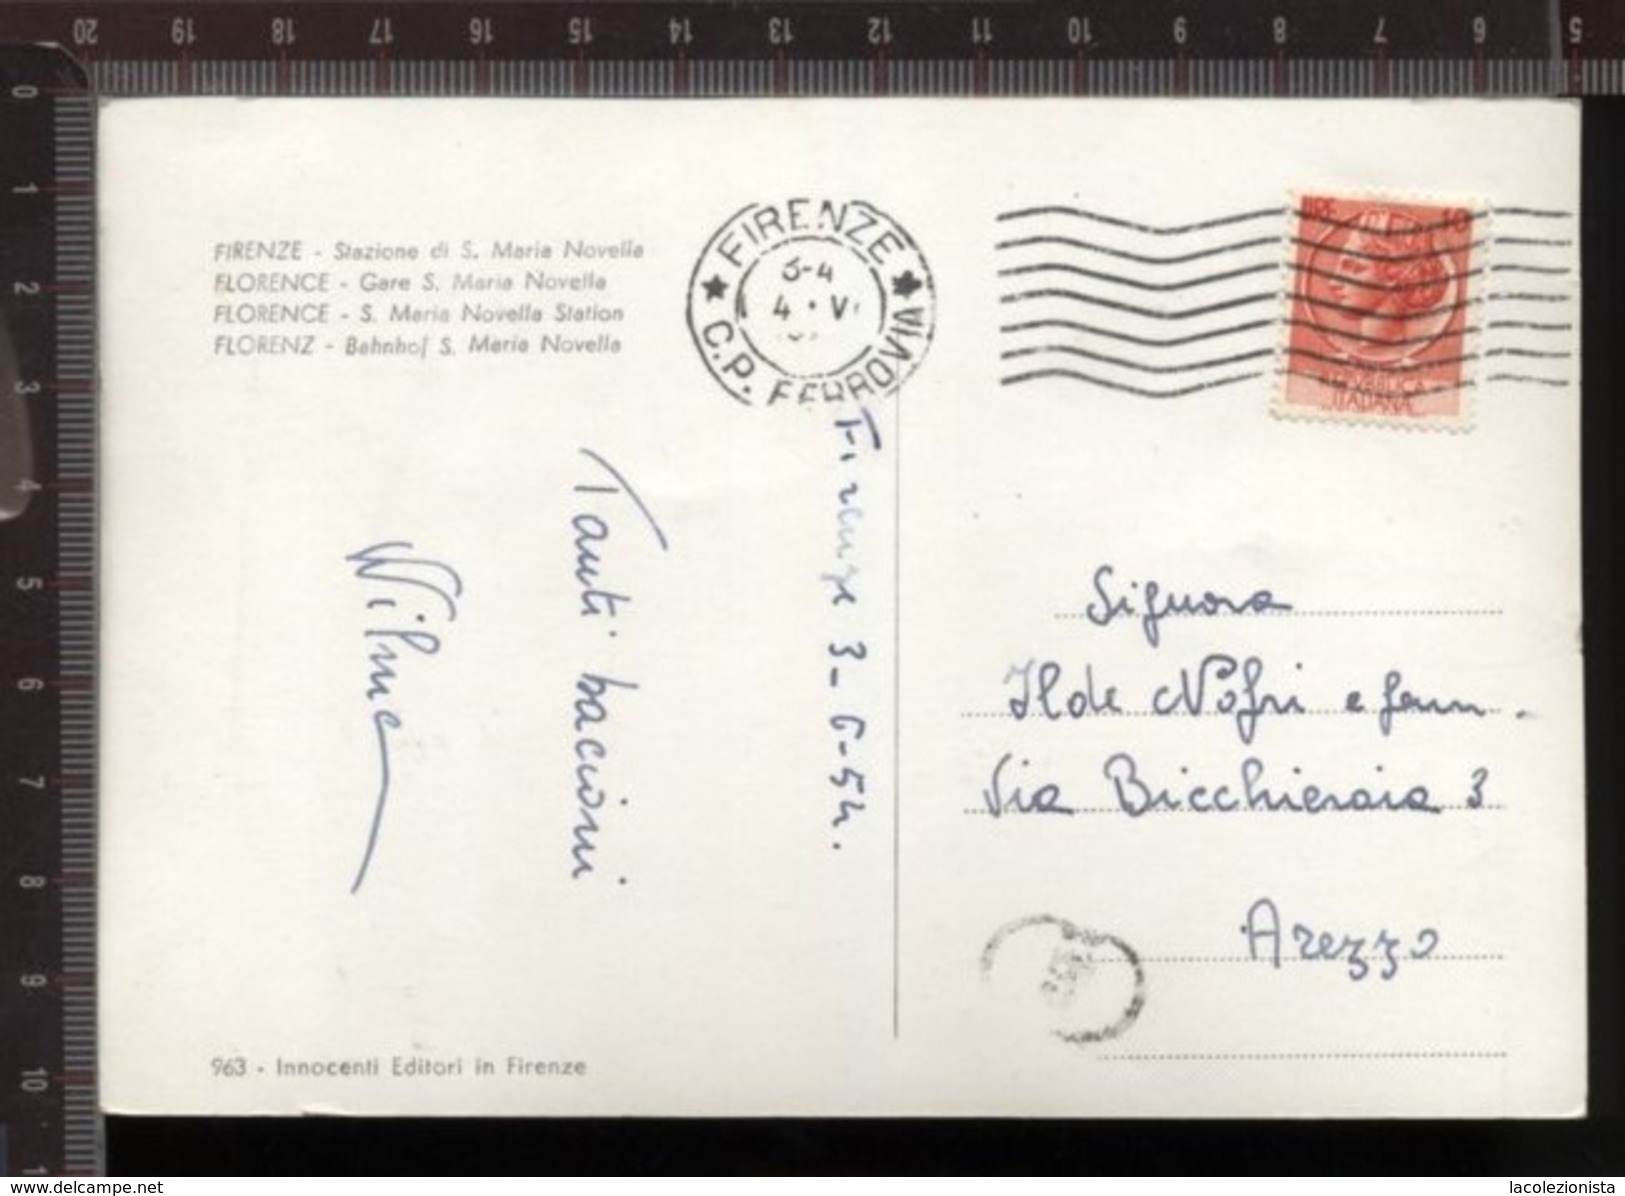 FIRENZE - Stazione di S. Maria Novella
FLORENCE - Gare S. Maria Novella
FLORENCE - S. Maria Novella Station
FLORENZ - Bahnhof S. Maria Novella
FIRENZE
C.P. FERROVIA
4 · VI
LIRE 10
REPVBBLICA
ITALIANA
Firenze 3-6-54.
Tanti bacioni
Wilma
Signora
Ilde Nofri e fam.
Via Bicchieraia 3
Arezzo
963 - Innocenti Editori in Firenze
20 19 18 17 16 15 14 13 12 11 10 9 8 7 6 5
0
1
2
3
4
5
6
7
8
9
10
www.delcampe.net
lacolezionista